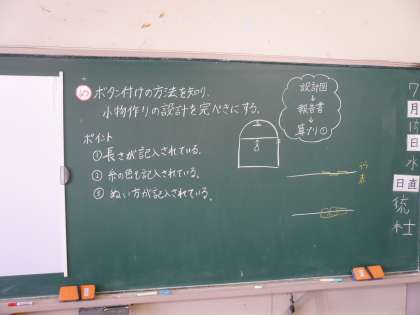 め ボタン付けの方法を知り、
小物作りの設計を完ぺきにする。
ポイント
①長さが記入されている。
②糸の色も記入されている。
③ぬい方が記入されている。
設計図
↓
報告書
↓
算ドリ①
7
月
15
日
水
日直